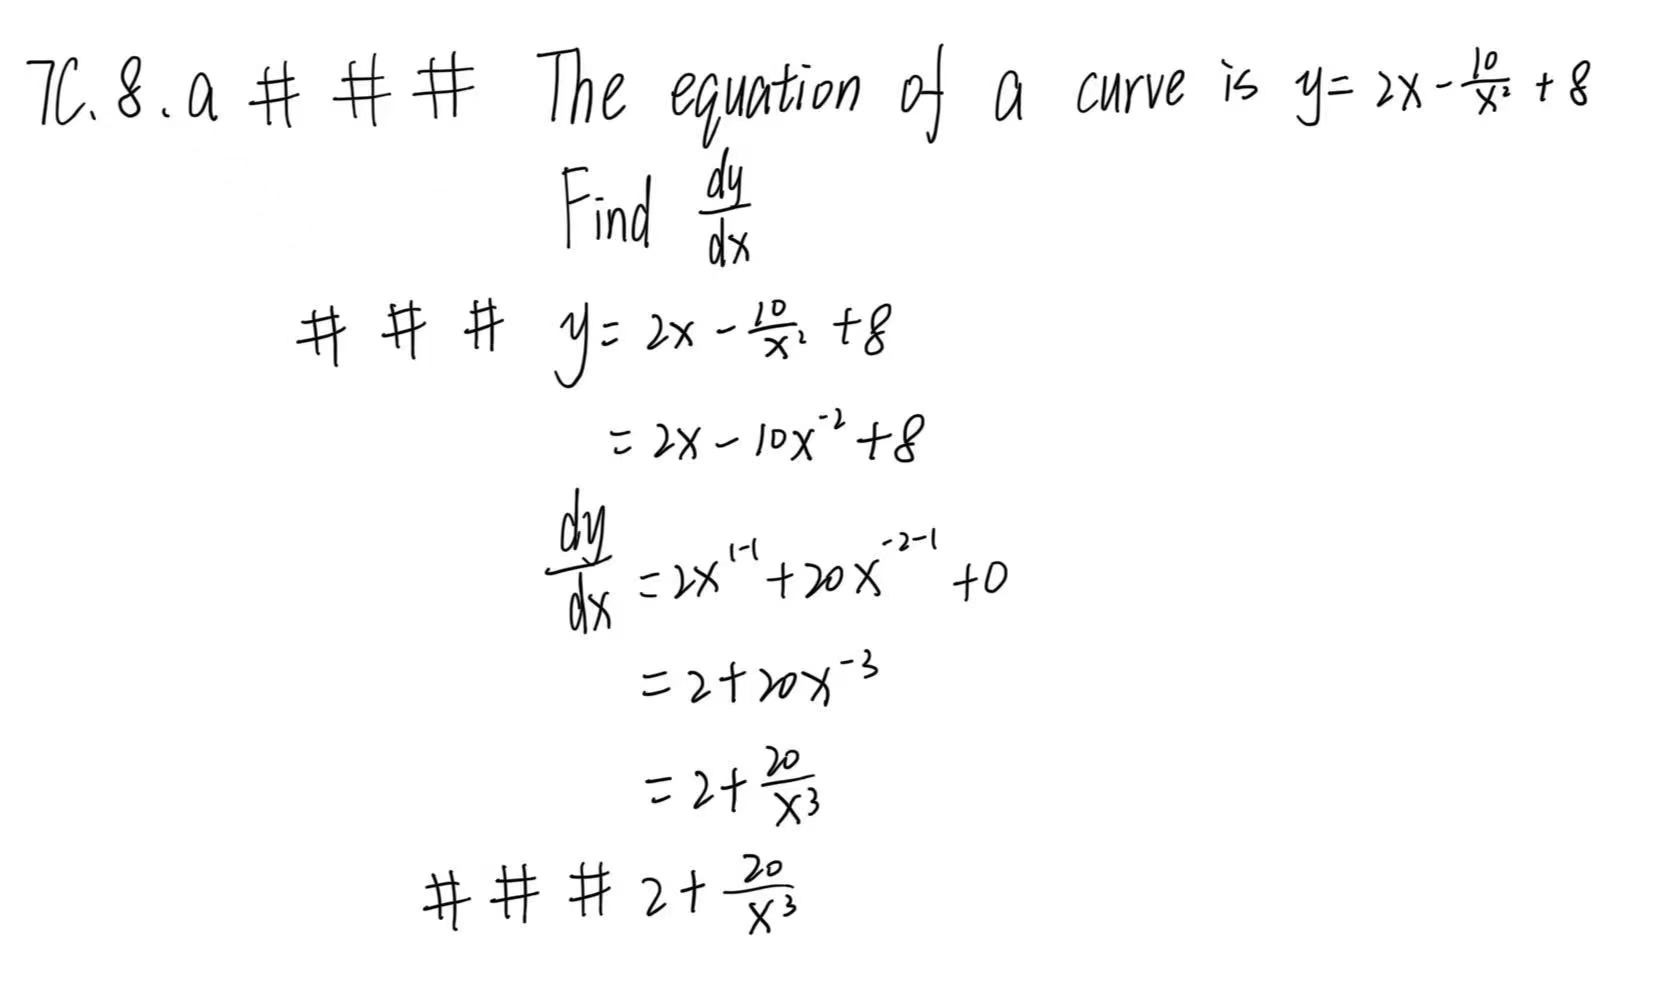 7C.8.a # # # The equation of a curve is y= 2x - 10/x² + 8
Find dy/dx
# # # y= 2x - 10/x² + 8
= 2x - 10x⁻² + 8
dy/dx = 2x¹⁻¹ + 20x⁻²⁻¹ + 0
= 2 + 20x⁻³
= 2 + 20/x³
# # # 2 + 20/x³